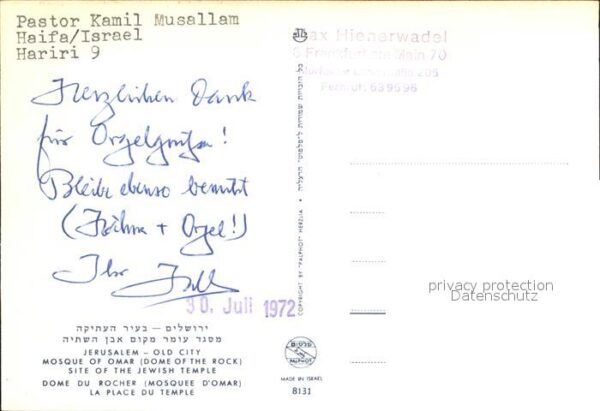 Pastor Kamil Musallam
Haifa/Israel
Hariri 9
Max Hienerwadel
6 Frankfurt am Main 70
205
Fernruf: 639596
Herzlichen Dank
für Orgelgrüße!
Bleibe ebenso bemüht
( + Orgel!)
Ihr
30. Juli 1972
ירושלים — בעיר העתיקה
מסגד עומר מקום אבן השתיה
JERUSALEM – OLD CITY
MOSQUE OF OMAR (DOME OF THE ROCK)
SITE OF THE JEWISH TEMPLE
DOME DU ROCHER (MOSQUEE D'OMAR)
LA PLACE DU TEMPLE
COPYRIGHT BY "PALPHOT" HERZLIA • כל הזכויות שמורות לפלפוט הרצליה
PALPHOT
MADE IN ISRAEL
8131
privacy protection
Datenschutz